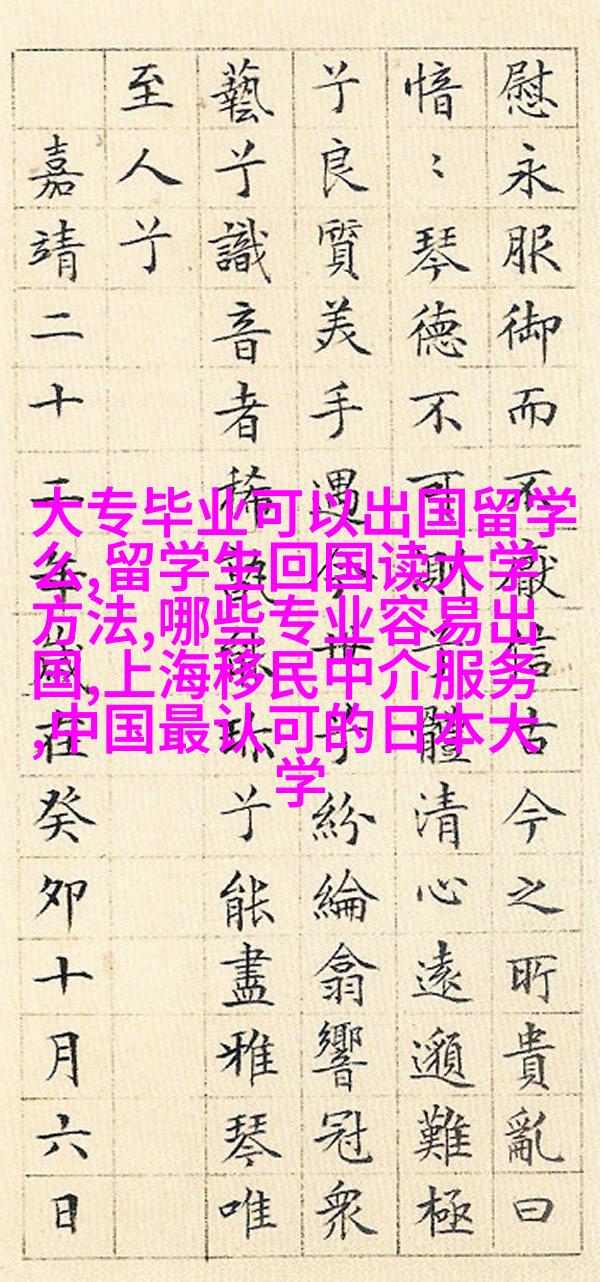 慰永服御而不猒信古今之所貴亂曰
愔〻琴德不可測兮體清心遠邈難極
兮良質美手遇今世兮紛綸翕響冠衆
藝兮識音者稀孰珎兮能盡雅琴唯
至人兮
嘉靖二十二年歲在癸卯十月六日
大专毕业可以出国留学
么,留学生回国读大学
方法,哪些专业容易出
国,上海移民中介服务
,中国最认可的日本大
学